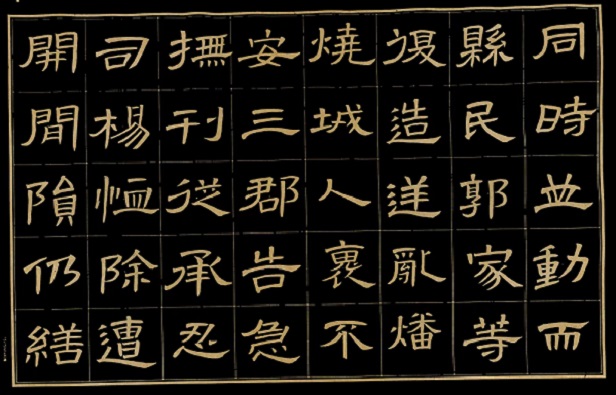 同時並動而
縣民郭家等
復造逆亂燔
燒城人裹不
安三郡告急
撫刊從承忍
司楊恤除遭
開間隕仍繕